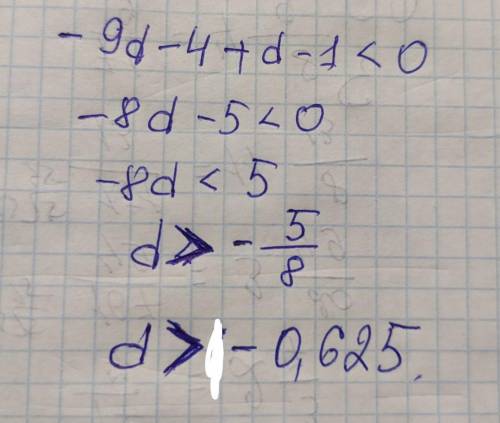 - 9d - 4 + d - 1 < 0
- 8d - 5 < 0
- 8d < 5
d > - 5/8
d > - 0,625.